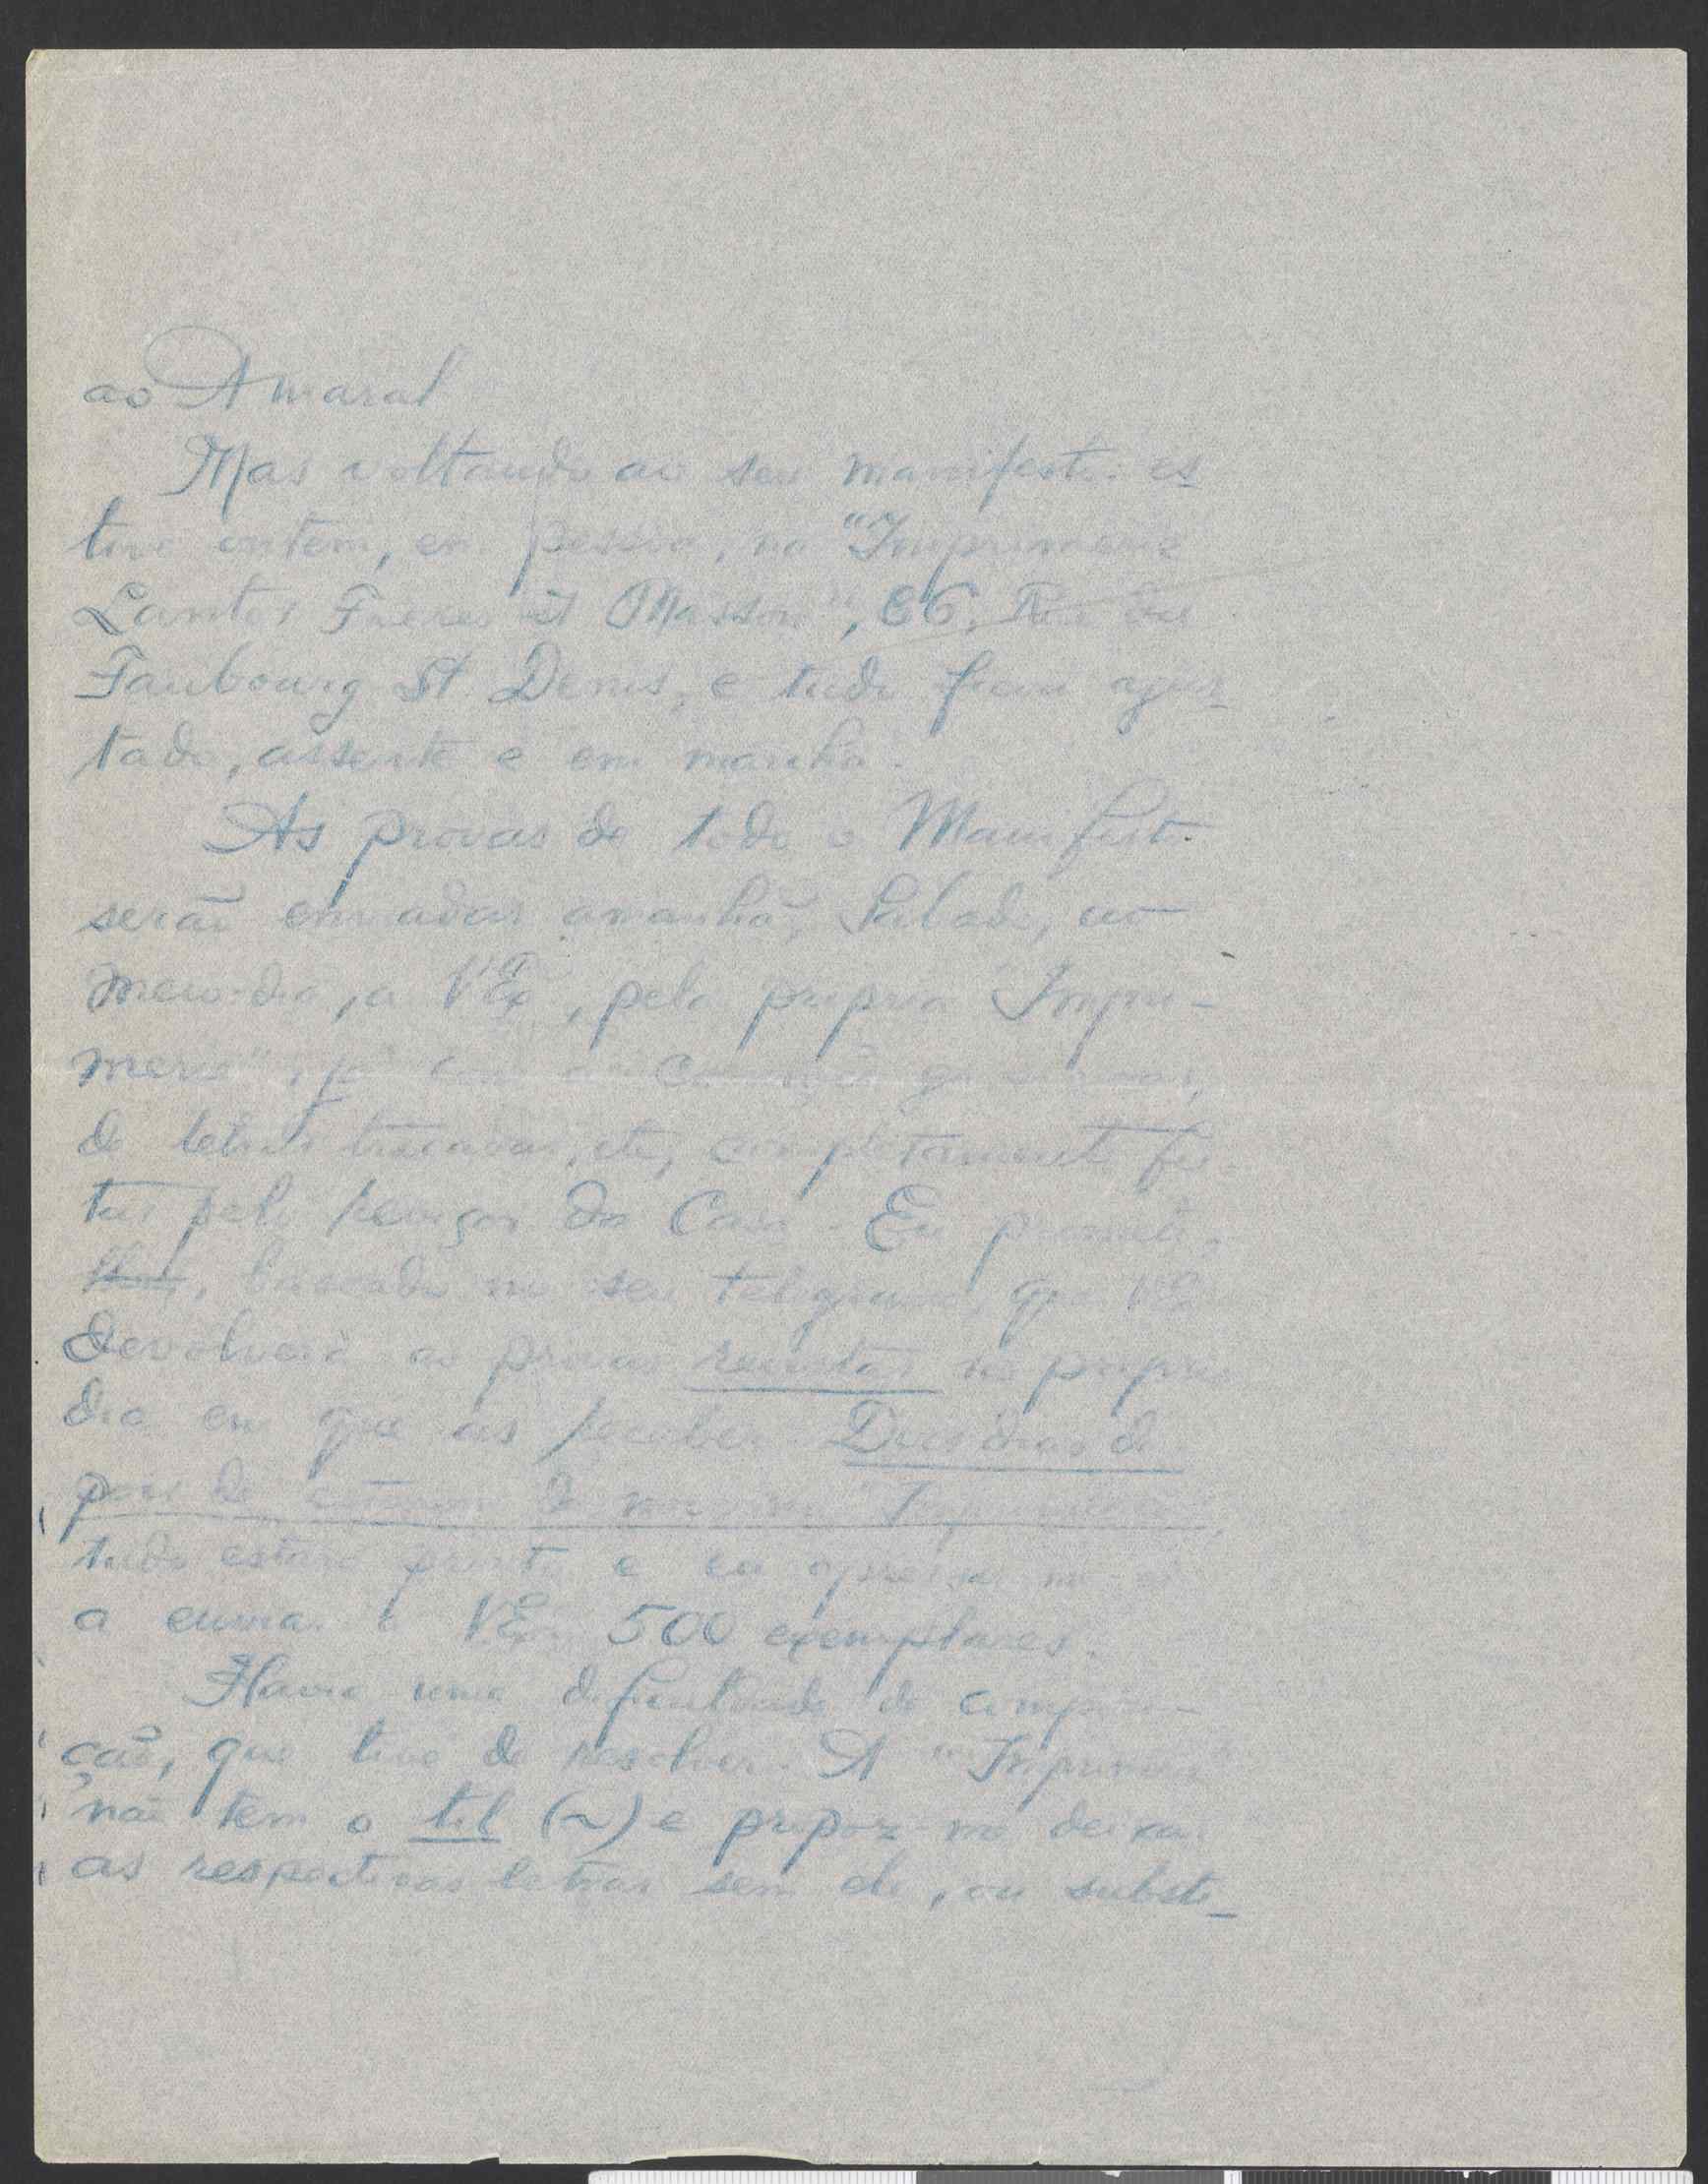 ao Amaral
Mas voltando ao seu manifesto: es
tive ontem, em pessoa, na "Imprimerie
Lantos Frères et Masson", 86, Rue du
Faubourg St. Denis, e tudo ficou ajus
tado, assente e em marcha.
As provas de todo o Manifesto
serão enviadas amanhã, Sabado, ao
meio-dia, a V Exª, pela propria "Impri-
merie", já com as
de letras trocadas, etc, completamente fei
tas pelo da Casa. Eu prometi-
, baseado no seu telegrama, que V Ex
devolverá as provas revistas no proprio
dia em que as receber. Dois dias de
pois de "Imprimerie",
tudo estará pronto e eu apressar-me-ei
a enviar a V Ex 500 exemplares.
Havia uma dificuldade de composi-
ção, que tive de resolver. A "Imprimerie"
não tem o til (~) e propoz-me deixar
as respectivas letras sem ele, ou substi